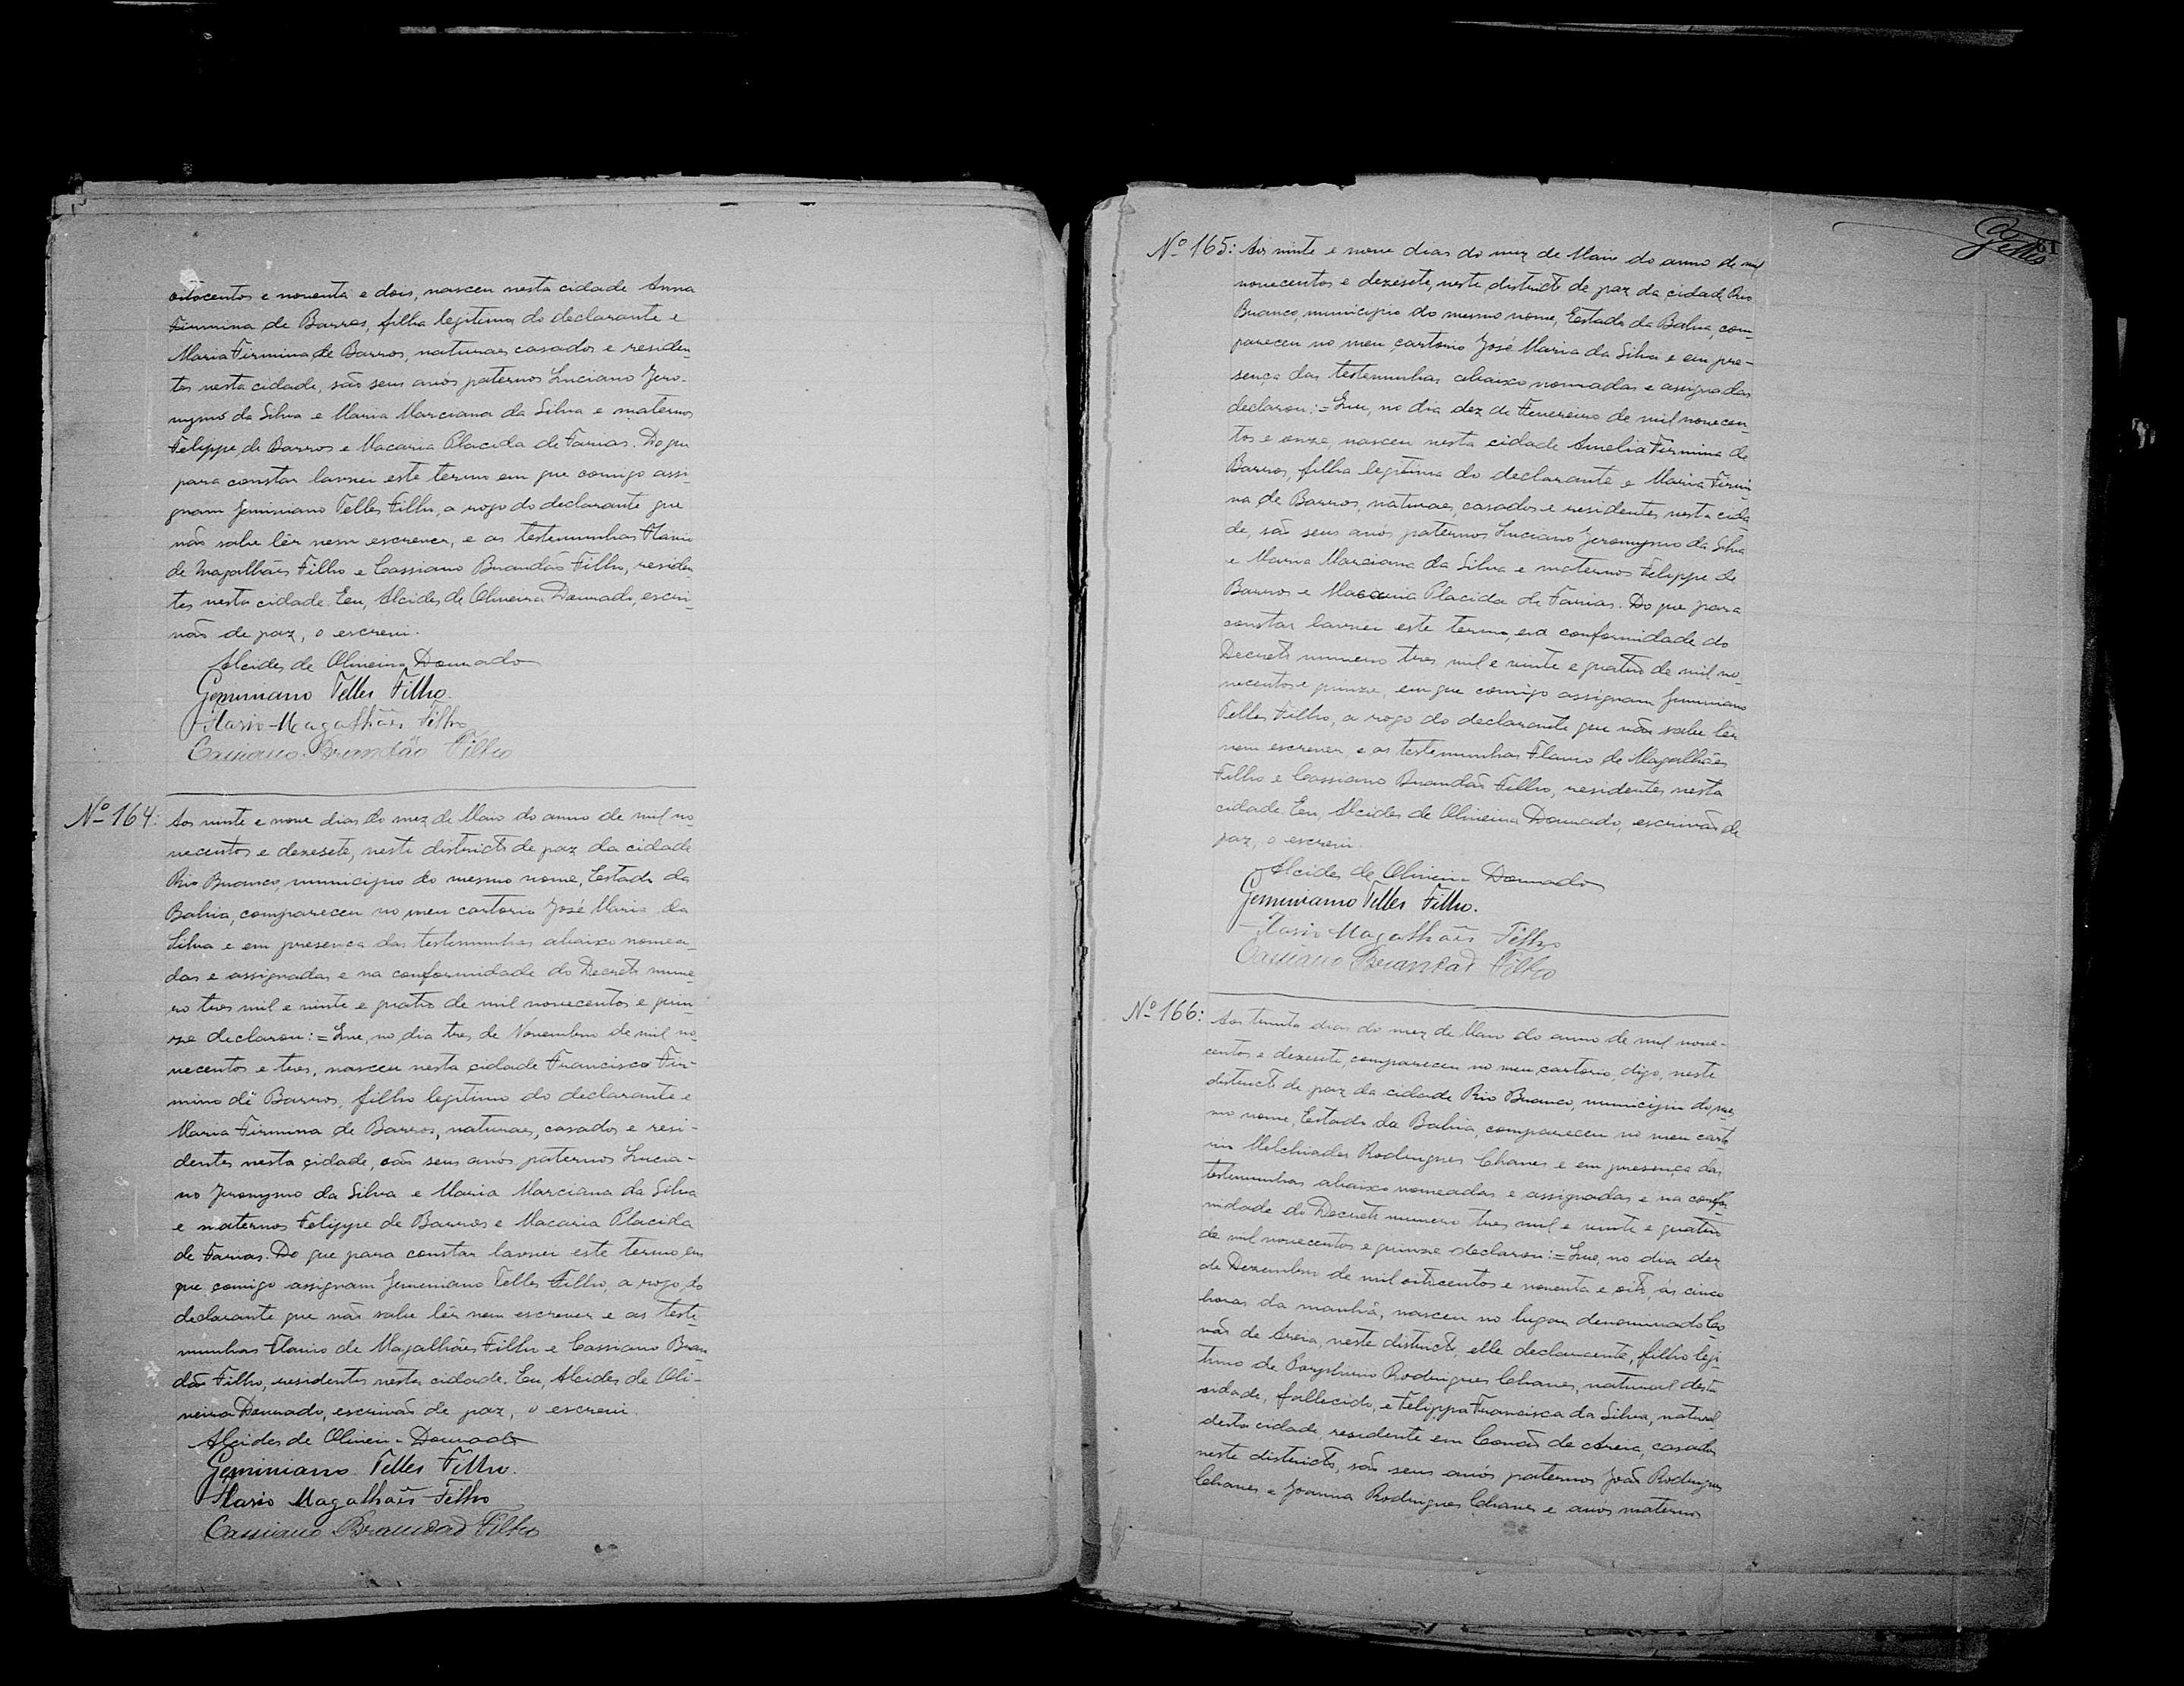 oitocentos e noventa e dois, nasceu nesta cidade Anna
Firmina de Barros, filha legitima do declarante e
Maria Firmina de Barros, naturaes casados e residen-
tes nesta cidade, são seus avós paternos Luciano Jero-
nymo da Silva e Maria Marciana da Silva e maternos
Felippe de Barros e Macaria Placida de Farias. Do que
para constar lavrei este termo em que comigo assi-
gnam Geminiano Telles Filho, a rogo do declarante que
não sabe lêr nem escrever, e as testemunhas Flavio
de Magalhães Filho e Cassiano Brandão Filho, residen-
tes nesta cidade. Eu, Alcides de Oliveira Dourado, escri-
vão de paz, o escrevi.
Alcides de Oliveira Dourado
Geminiano Telles Filho.
Flavio Magalhães Filho
Cassiano Brandão Filho
Nº 164: Aos vinte e nove dias do mez de Maio do anno de mil no-
vecentos e dezesete, neste districto de paz da cidade
Rio Branco, municipio do mesmo nome, Estado da
Bahia, compareceu no meu cartorio José Maria da
Silva e em presença das testemunhas abaixo nomea-
das e assignadas e na conformidade do Decreto nume-
ro tres mil e vinte e quatro de mil novecentos e quin-
ze declarou:= Que, no dia tres de Novembro de mil no-
vecentos e tres, nasceu nesta cidade Francisco Fir-
mino de Barros, filho legitimo do declarante e
Maria Firmina de Barros, naturaes, casados e resi-
dentes nesta cidade, são seus avós paternos Lucia-
no Jeronymo da Silva e Maria Marciana da Silva
e maternos Felippe de Barros e Macaria Placida
de Farias. Do que para constar lavrei este termo em
que comigo assignam Geminiano Telles Filho, a rogo do
declarante que não sabe lêr nem escrever e as teste-
munhas Flavio de Magalhães Filho e Cassiano Bran-
dão Filho, residentes nesta cidade. Eu, Alcides de Oli-
veira Dourado, escrivão de paz, o escrevi.
Alcides de Oliveira Dourado
Geminiano Telles Filho.
Flavio Magalhães Filho
Cassiano Brandão Filho
Telles
61
Nº 165: Aos vinte e nove dias do mez de Maio do anno de mil
novecentos e dezesete, neste districto de paz da cidade Rio
Branco, municipio do mesmo nome, Estado da Bahia, com-
pareceu no meu cartorio José Maria da Silva e em pre-
sença das testemunhas abaixo nomeadas e assignadas
declarou:= Que, no dia dez de Fevereiro de mil novecen-
tos e onze, nasceu nesta cidade Amelia Firmina de
Barros, filha legitima do declarante e Maria Firmi-
na de Barros, naturaes, casados e residentes nesta cida-
de, são seus avós paternos Luciano Jeronymo da Silva
e Maria Marciana da Silva e maternos Felippe de
Barros e Macaria Placida de Farias. Do que para
constar lavrei este termo, na conformidade do
Decreto numero tres mil e vinte e quatro de mil no-
vecentos e quinze, em que comigo assignam Geminiano
Telles Filho, a rogo do declarante que não sabe lêr
nem escrever, e as testemunhas Flavio de Magalhães
Filho e Cassiano Brandão Filho, residentes nesta
cidade. Eu, Alcides de Oliveira Dourado, escrivão de
paz, o escrevi.
Alcides de Oliveira Dourado
Geminiano Telles Filho.
Flavio Magalhães Filho
Cassiano Brandão Filho
Nº 166: Aos trinta dias do mez de Maio do anno de mil nove-
centos e dezesete, compareceu no meu cartorio, digo, neste
districto de paz da cidade Rio Branco, municipio do mes-
mo nome, Estado da Bahia, compareceu no meu carto-
rio Melchiades Rodrigues Chaves e em presença das
testemunhas abaixo nomeadas e assignadas e na confor-
midade do Decreto numero tres mil e vinte e quatro
de mil novecentos e quinze declarou:= Que, no dia dez
de Dezembro de mil oitocentos e noventa e oito, ás cinco
horas da manhã, nasceu no lugar denominado Co-
vão de Areia, neste districto, elle declarante, filho legi-
timo de Porphirio Rodrigues Chaves, natural desta
cidade, fallecido, e Felippa Francisca da Silva, natural
desta cidade, residente em Covão de Areia, casados
neste districto, são seus avós paternos João Rodrigues
Chaves e Joanna Rodrigues Chaves e avos maternos